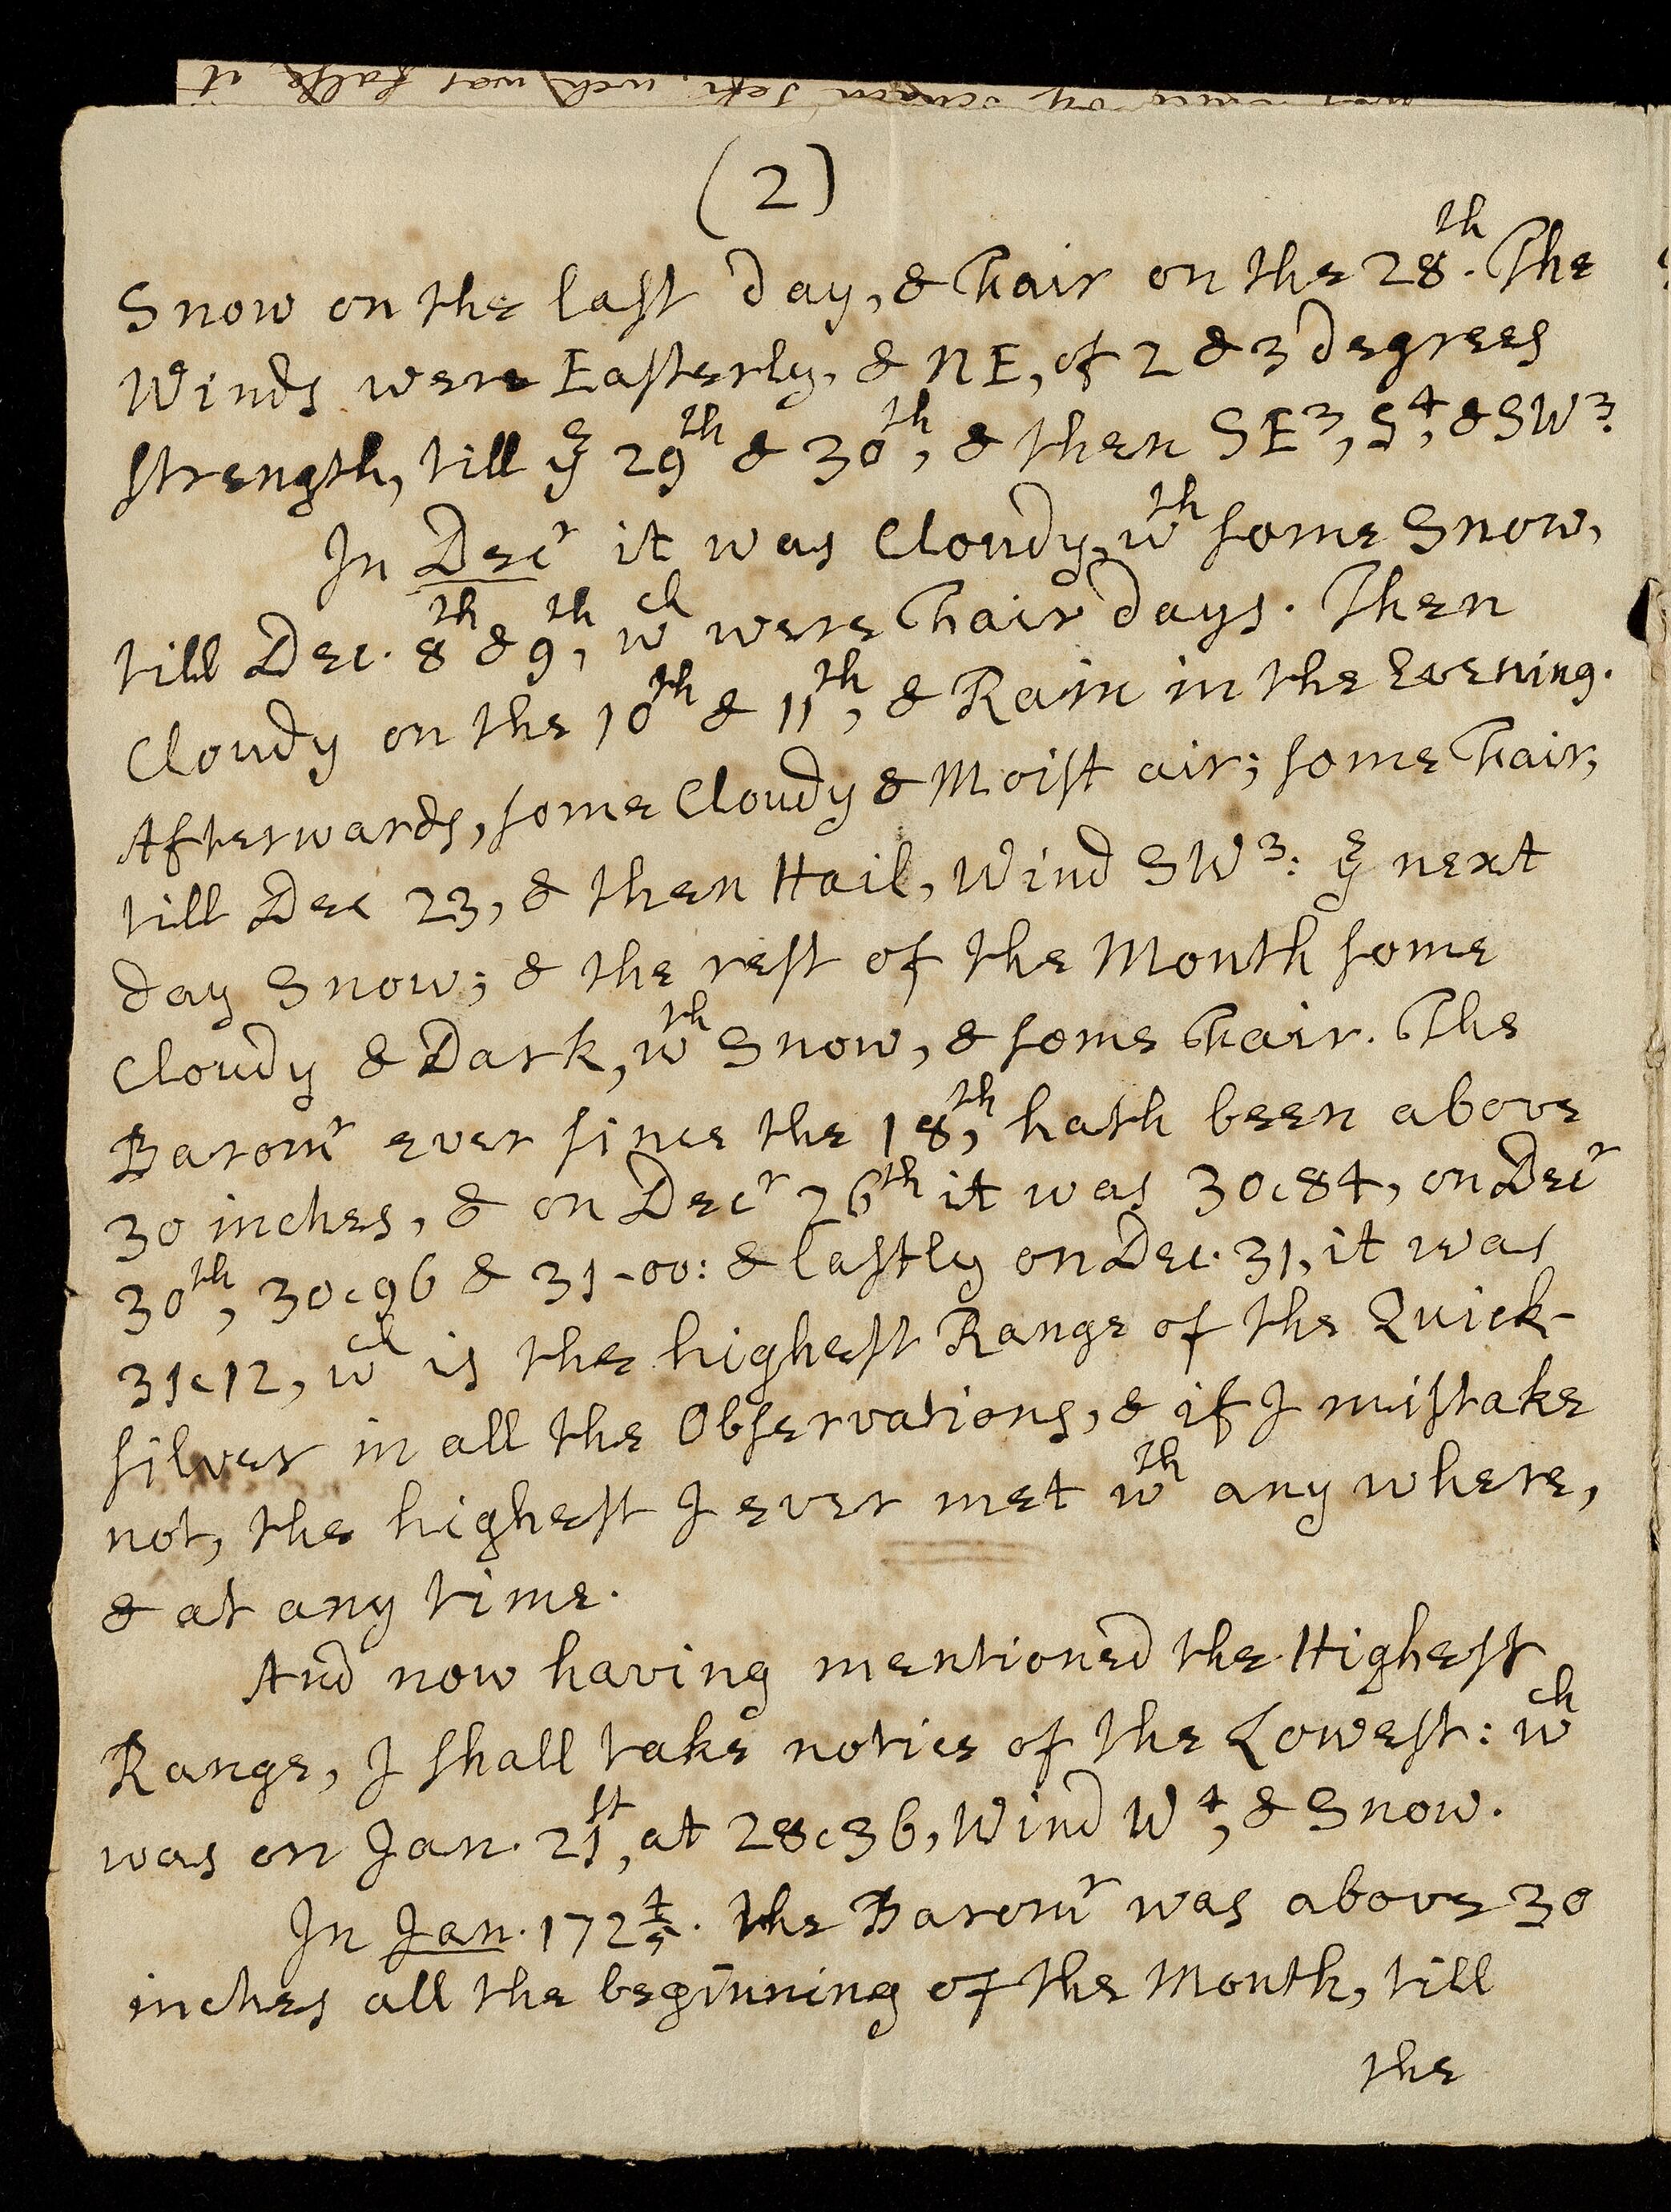 (2)
Snow on the last day, & Fair on the 28th. The
Winds were Easterly, & NE, of 2 & 3 degrees
strength, till ye 29th & 30th, & then SE3, S4, & SW3.
In Decr it was Cloudy, wth some Snow,
till Dec. 8th & 9th, wch were Fair days. Then
Cloudy on the 10th & 11th, & Rain in the Evening.
Afterwards, some Cloudy & Moist air; some Fair,
till Dec 23, & then Hail, Wind SW3: ye next
day Snow; & the rest of the Month some
Cloudy & Dark, wth Snow, & some Fair. The
Baromr ever since the 18th, hath been above
30 inches, & on Decr 26th it was 30c84, on Decr
30th, 30c96 & 31-00: & lastly on Dec. 31, it was
31c12, wch is the highest Range of the Quick-
silver in all the Observations, & if I mistake
not, the highest I ever met wth any where,
& at any time.
And now having mentioned the Highest
Range, I shall take notice of the Lowest: wch
was on Jan. 21st, at 28c36, Wind W4, & Snow.
In Jan. 172 4/5. the Baromr was above 30
inches all the beginning of the Month, till
the